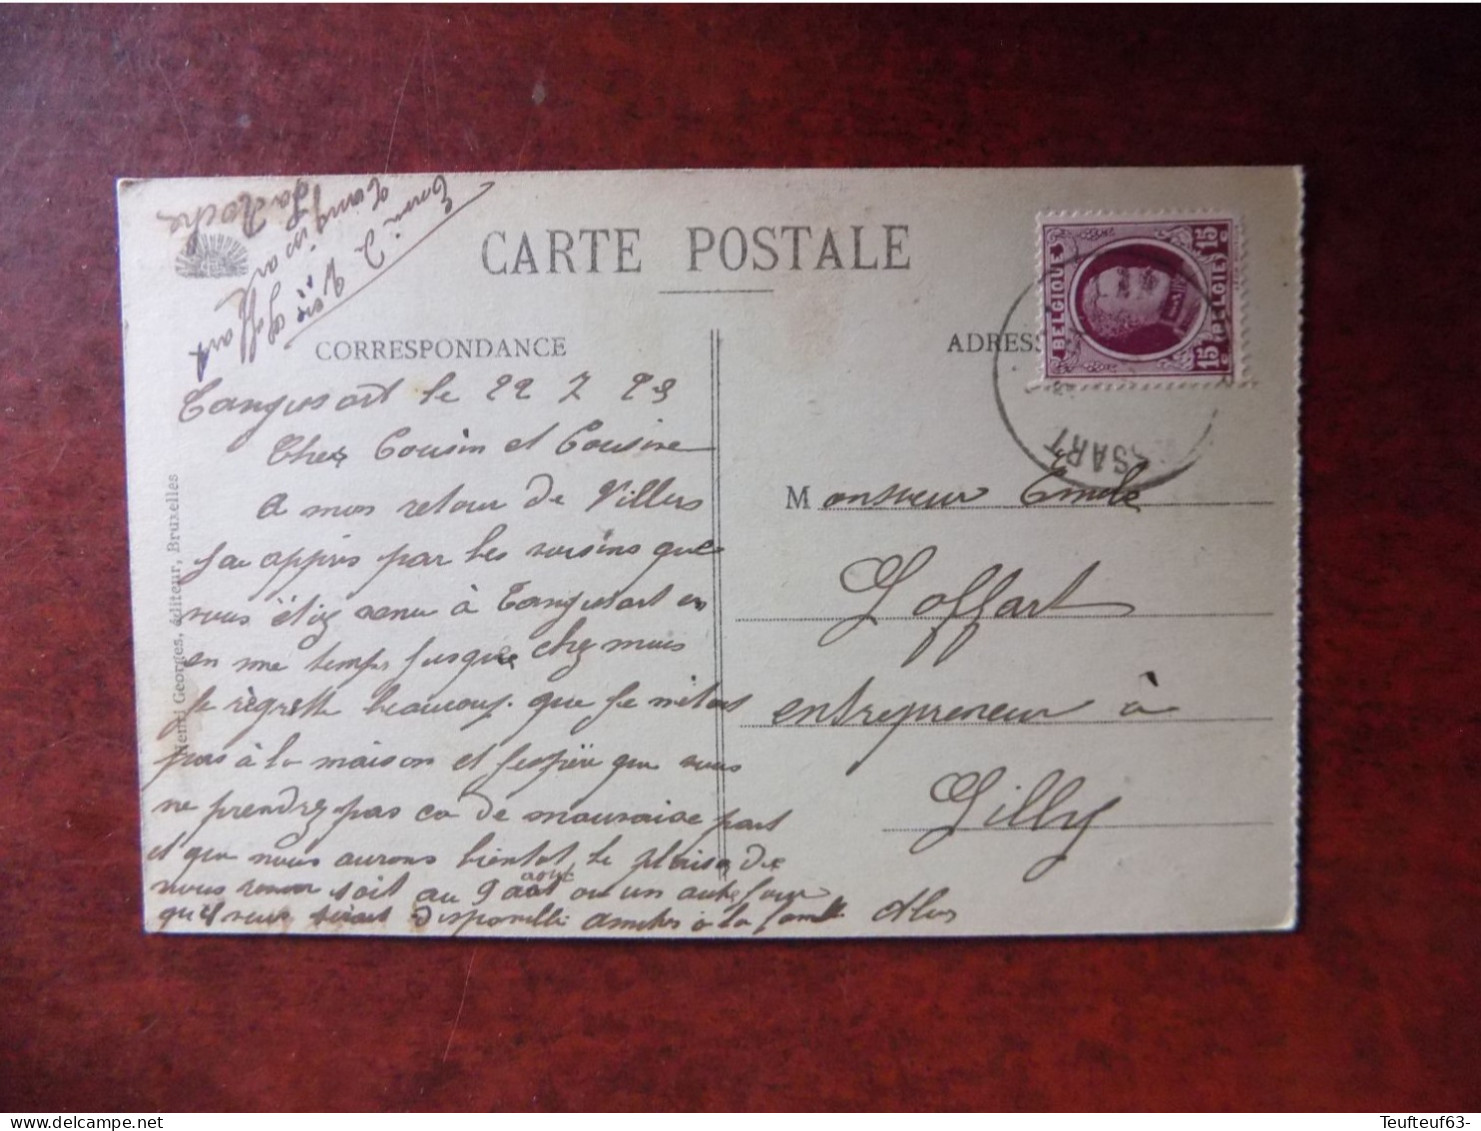 Envoi de
Loffart
Tangissart
La Roche
CARTE POSTALE
CORRESPONDANCE
ADRESS
BELGIQUE
BELGIE
15 c
15 c
SSART
Tangissart le 22 7 23
Cher Cousin et Cousine
a mon retour de Villers
j'ai appris par les voisins que
vous êtiez venu à Tangissart en
en me temps jusque chez mois
je règrette beaucoup que je n'étais
pas à la maison et j'espère que vous
ne prendrez pas ca de mauvaise part
et que nous aurons bientot le plaisir de
vous soit au 9 aout aout ou un autre jour
qu'il vous serait disponible amitiés a la famille
Monsieur Emile
Loffart
entrepreneur à
Gilly
Henri Georges, éditeur, Bruxelles
Teufteuf63-